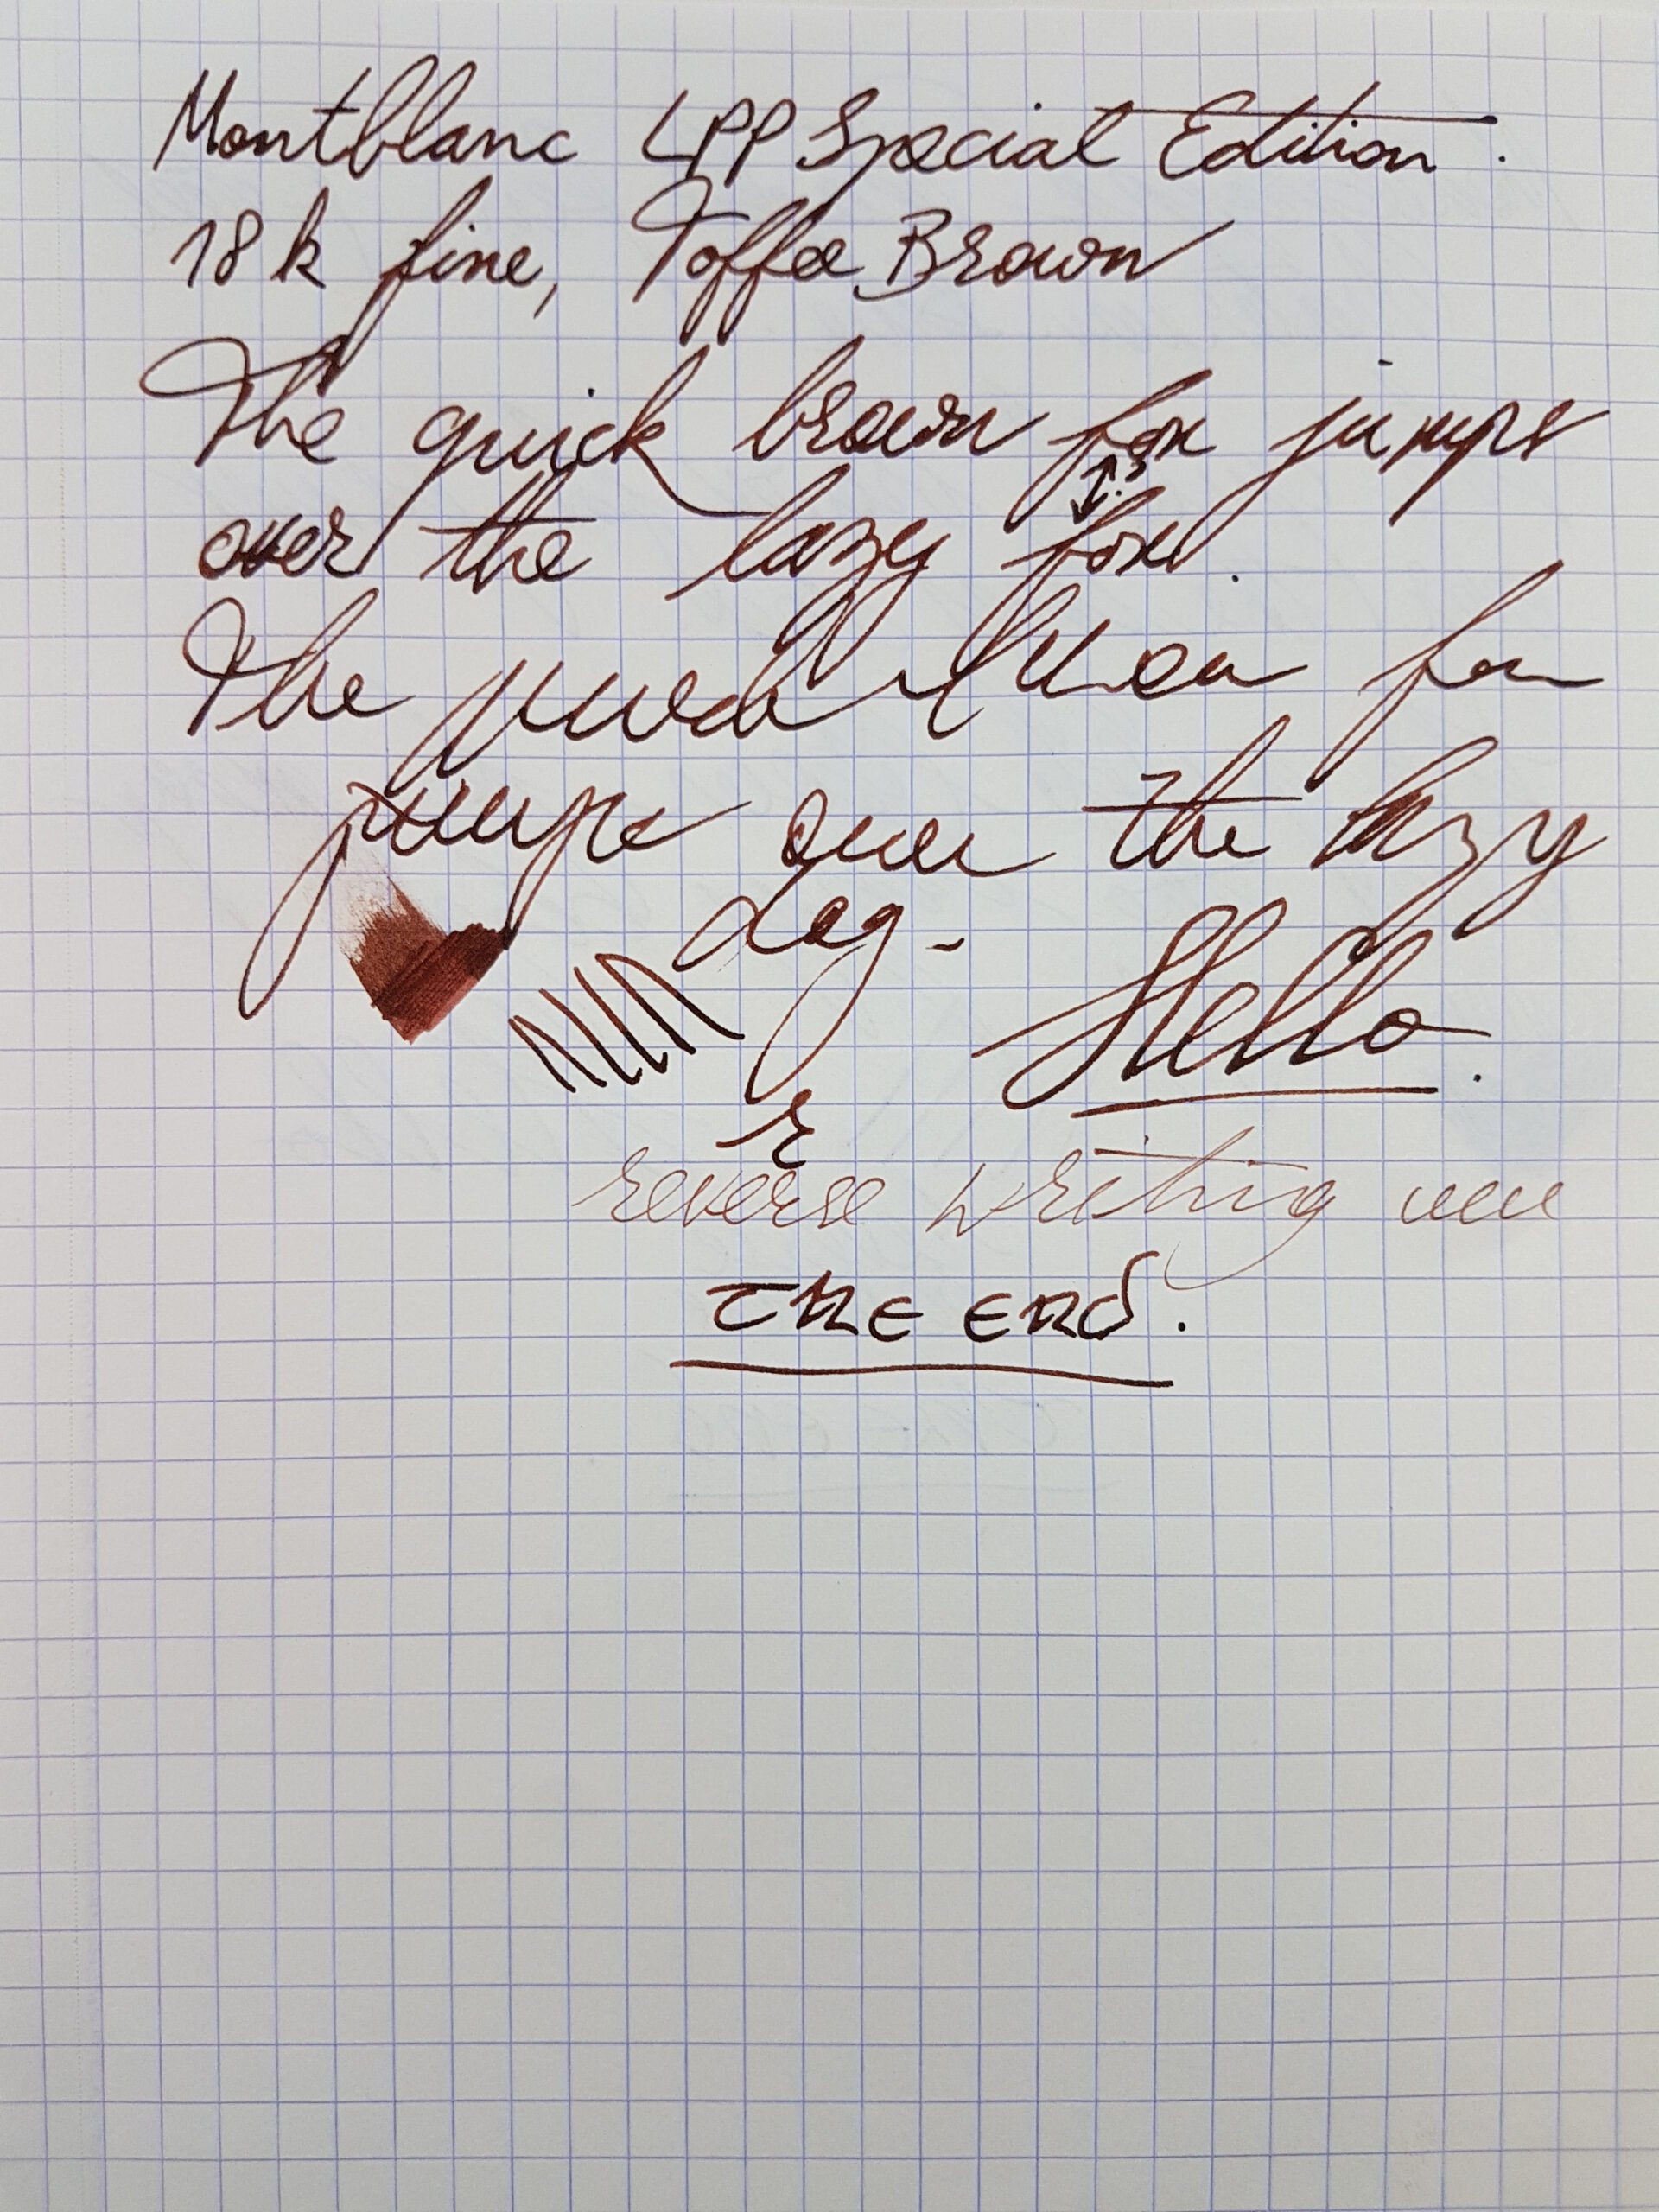 Montblanc LPP Special Edition.
18k fine, Toffee Brown
The quick brown fox jumps
over the lazy fox.
The quick brown fox
jumps over the lazy
dog.
Hello.
r
reverse writing
THE END.